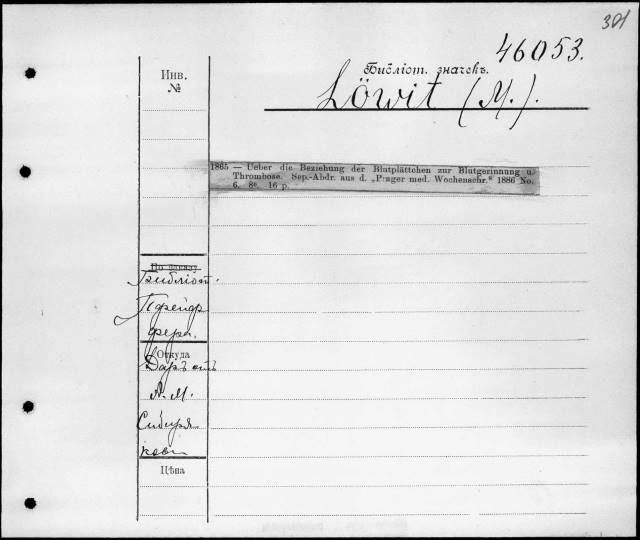 301
46053.
Инв.
№
Библіот. значекъ.
Löwit (M.).
1865 — Ueber die Beziehung der Blutplättchen zur Blutgerinnung u.
Thrombose. Sep.-Abdr. aus d. „Prager med. Wochenschr.“ 1886 No.
6. 8º. 16 p.
Библіот.
Пфейф
фера.
Откуда
Даръ отъ
А. М.
Сибиря
кова
Цѣна